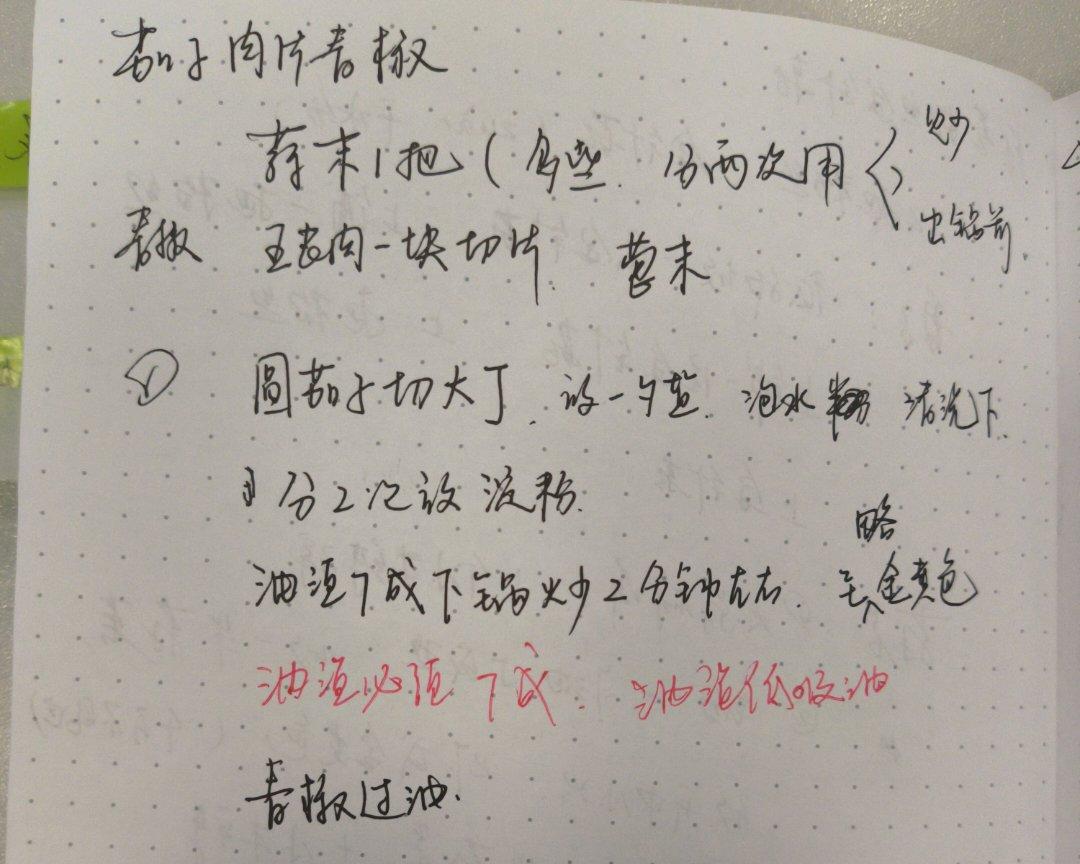 茄子肉片青椒
蒜末1把(多些 分两次用 炒
出锅前
青椒 瘦肉一块切片 葱末
① 圆茄子切大丁 放一勺盐 泡水 清洗下
分2次放淀粉.
油温7成下锅炒2分钟左右 略
呈金黄色
油温必须7成. 油温低吸油
青椒过油.